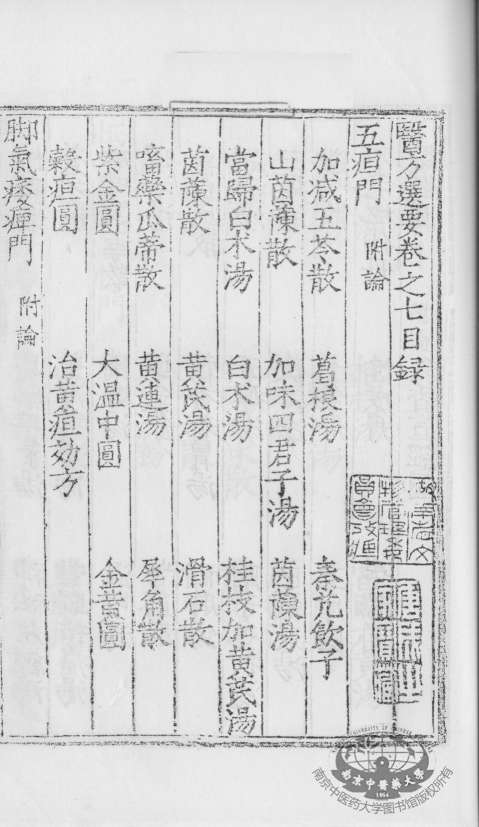 醫方選要卷之七目録
五疸門 附論
加减五苓散 葛根湯 秦艽飲子
山茵蔯散 加味四君子湯 茵蔯湯
當歸白术湯 白术湯 桂枝加黄茋湯
茵蔯散 黄茋湯 滑石散
㗜藥瓜蒂散 黄連湯 犀角散
紫金圓 大温中圓 金黄圓
穀疸圓 治黄疸効方
脚氣痿痺門 附論
南京中醫藥大學
1954
南京中医药大学图书馆版权所有